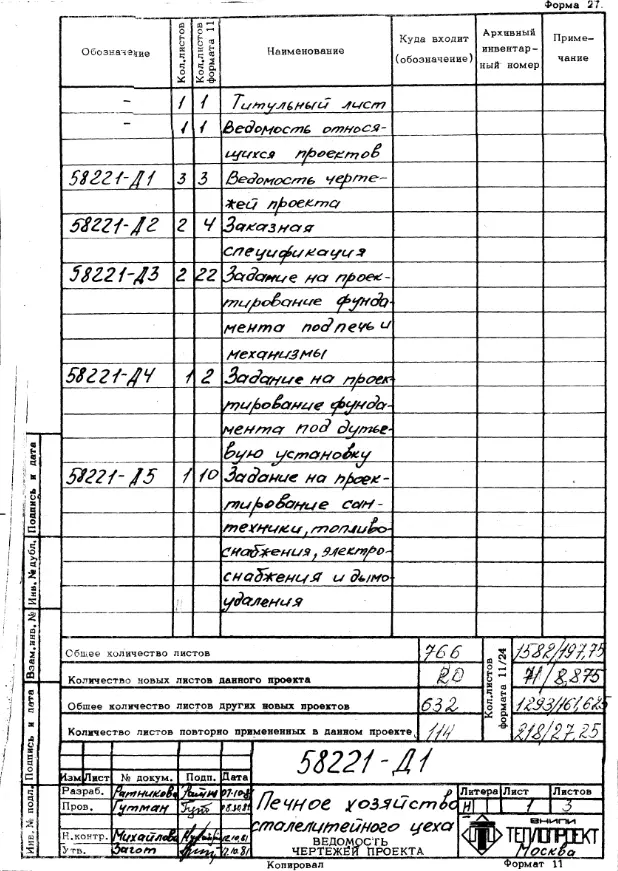 Форма 27.
Обозначение Кол.листов Кол.листов формата 11 Наименование Куда входит (обозначение) Архивный инвентар-ный номер Приме-чание
– 1 1 Титульный лист
– 1 1 Ведомость относя-
щихся проектов
58221-Д1 3 3 Ведомость черте-
жей проекта
58221-Д2 2 4 Заказная
спецификация
58221-Д3 2 22 Задание на проек-
тирование фунда-
мента под печь и
механизмы
58221-Д4 1 2 Задание на проек-
тирование фунда-
мента под дутье-
вую установку
58221-Д5 1 10 Задание на проек-
тирование сан-
техники, топливо-
снабжения, электро-
снабжения и дымо
удаления
Общее количество листов 766 1582/197,75
Количество новых листов данного проекта 20 71/8,875
Общее количество листов других новых проектов 632 1293/161,625
Количество листов повторно примененных в данном проекте. 114 218/27.25
Кол.листов формата 11/24
58221-Д1
Изм Лист № докум. Подп. Дата
Разраб. Ратникова
Пров. Гутман
Н.контр. Михайлова
Утв. Загот 12.10.81
Печное хозяйство
сталелитейного цеха
ВЕДОМОСТЬ
ЧЕРТЕЖЕЙ ПРОЕКТА
Литера Лист Листов
Н 1 3
ВНИПИ
ТЕПЛОПРОЕКТ
Москва
Копировал Формат 11
Инв. № подл. Подпись и дата Взам.инв. № Инв. № дубл. Подпись и дата